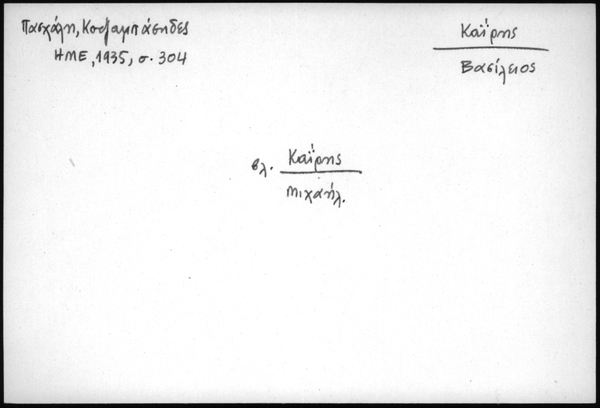 Πασχάλη, Κοτζαμπάσηδες
ΗΜΕ, 1935, σ. 304
Καΐρης
Βασίλειος
βλ. Καΐρης
Μιχαήλ.